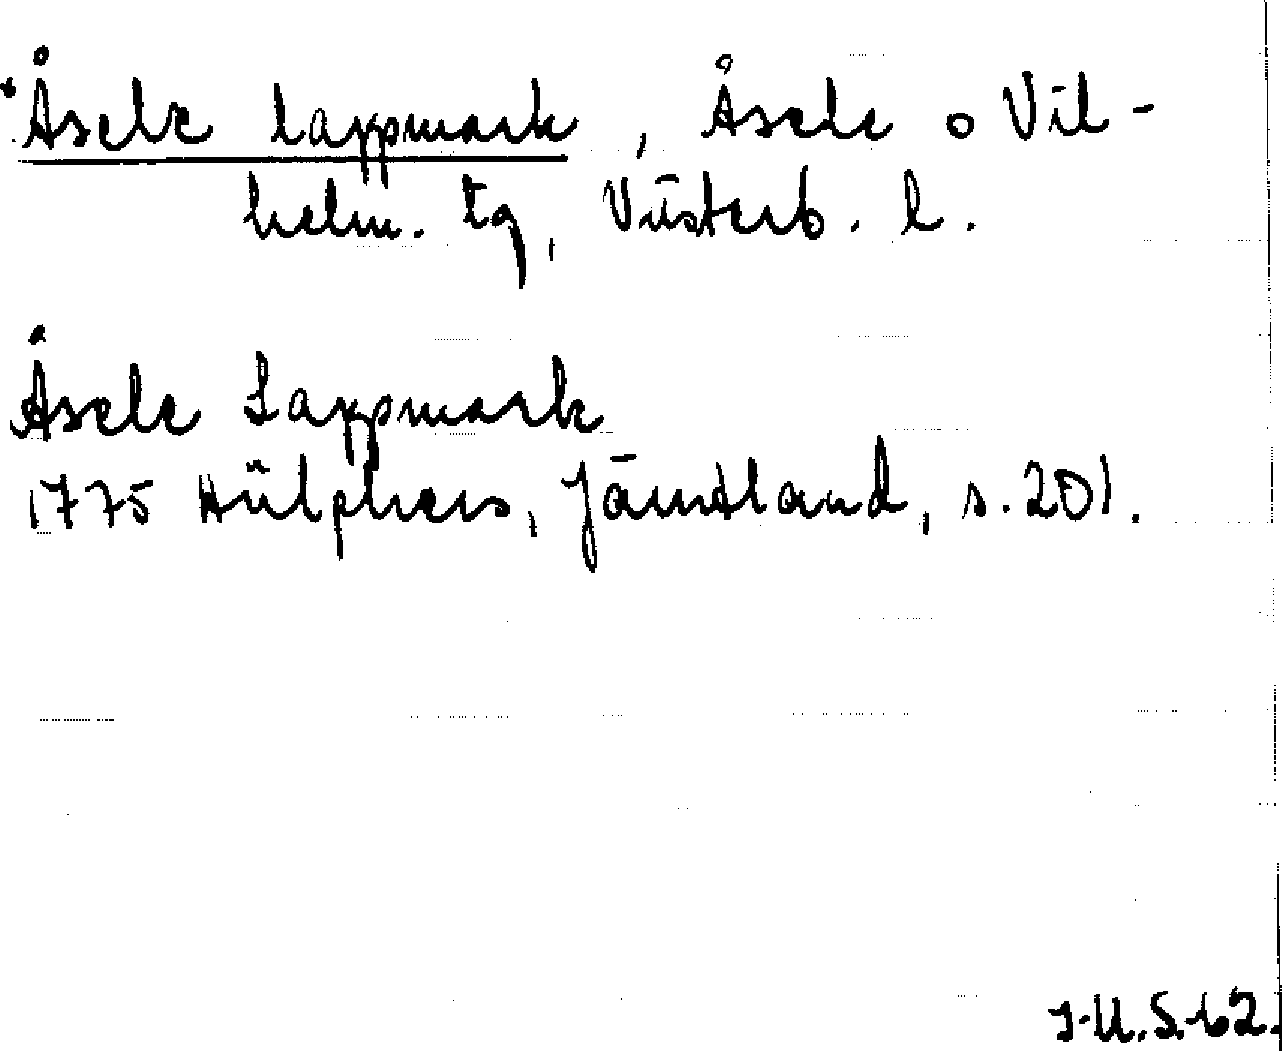 *Åsele lappmark, Åsele o Vil-
helm. tg, Västerb. l.
Åsele Lappmark
1775 Hülphers, Jämtland, s. 201.
J.U.S.62.